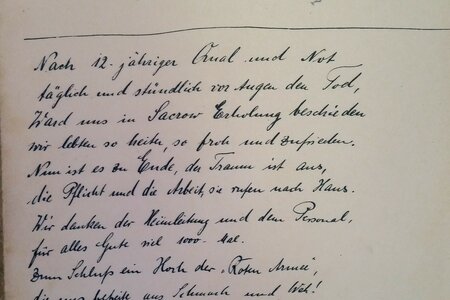 Nach 12-jähriger Qual und Not
täglich und stündlich vor Augen den Tod,
Ward uns in Sacrow Erholung beschieden
wir lebten so heiter, so froh und zufrieden.
Nun ist es zu Ende, der Traum ist aus,
die Pflicht und die Arbeit, sie rufen nach Haus.
Wir danken der Heimleitung und dem Personal,
für alles Gute viel 1000-Mal.
Zum Schluß ein Hoch der „Roten Armee",
die uns befreite aus Schmach und Weh!